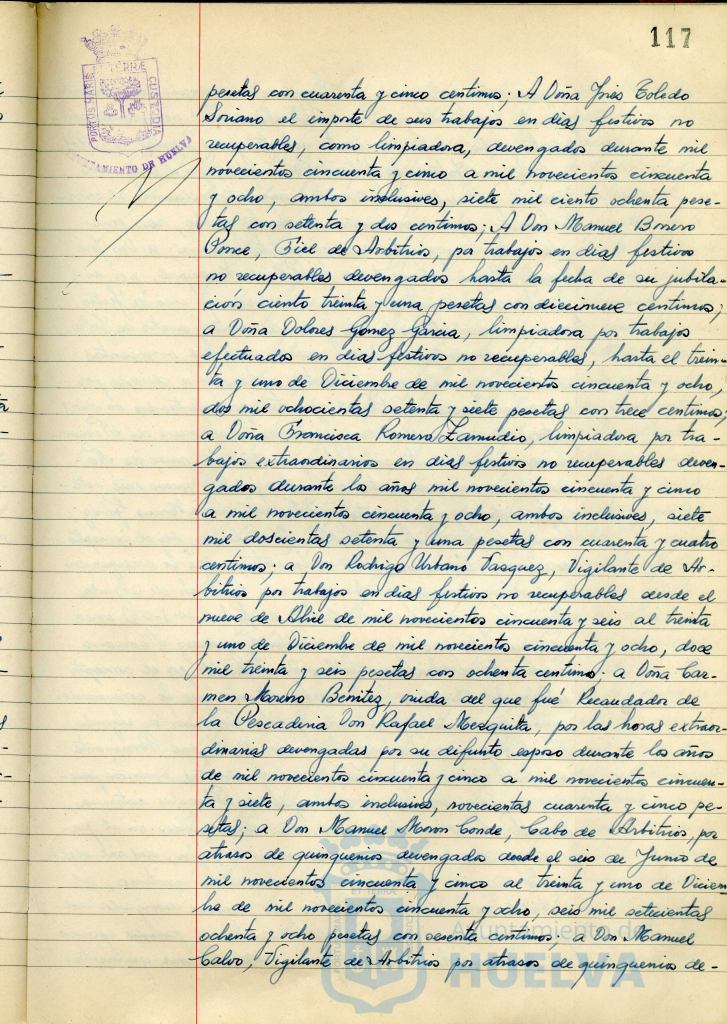 117
PORTUS MARIS
ET TERRÆ
CUSTODIA
AYUNTAMIENTO DE HUELVA
pesetas con cuarenta y cinco centimos; A Doña Inés Toledo
Soriano el importe de sus trabajos en días festivos no
recuperables, como limpiadora, devengados durante mil
novecientos cincuenta y cinco a mil novecientos cincuenta
y ocho, ambos inclusives, siete mil ciento ochenta pese-
tas con setenta y dos centimos; A Don Manuel Borrero
Ponce, Fiel de Arbitrios, por trabajos en días festivos
no recuperables devengados hasta la fecha de su jubila-
ción ciento treinta y una pesetas con diecinueve centimos;
a Doña Dolores Gomez Garcia, limpiadora por trabajos
efectuados en dias festivos no recuperables, hasta el trein-
ta y uno de Diciembre de mil novecientos cincuenta y ocho,
dos mil ochocientas setenta y siete pesetas con trece centimos;
a Doña Francisca Romero Zamudio, limpiadora por tra-
bajos extraordinarios en dias festivos no recuperables deven-
gados durante los años mil novecientos cincuenta y cinco
a mil novecientos cincuenta y ocho, ambos inclusives, siete
mil doscientas setenta y una pesetas con cuarenta y cuatro
centimos; a Don Rodrigo Urbano Vasquez, Vigilante de Ar-
bitrios por trabajos en dias festivos no recuperables desde el
nueve de Abril de mil novecientos cincuenta y seis al treinta
y uno de Diciembre de mil novecientos cincuenta y ocho, doce
mil treinta y seis pesetas con ochenta centimos; a Doña Car-
men Moreno Benitez, viuda del que fué Recaudador de
la Pescaderia Don Rafael Mezquita, por las horas extraor-
dinarias devengadas por su difunto esposo durante los años
de mil novecientos cincuenta y cinco a mil novecientos cincuen-
ta y siete, ambos inclusives, novecientas cuarenta y cinco pe-
setas; a Don Manuel Moron Conde, Cabo de Arbitrios, por
atrasos de quinquenios devengados desde el seis de Junio de
mil novecientos cincuenta y cinco al treinta y uno de Diciem
bre de mil novecientos cincuenta y ocho, seis mil setecientas
ochenta y ocho pesetas con sesenta centimos; a Don Manuel
Calvo, Vigilante de Arbitrios por atrasos de quinquenios de-
Ayuntamiento de
HUELVA